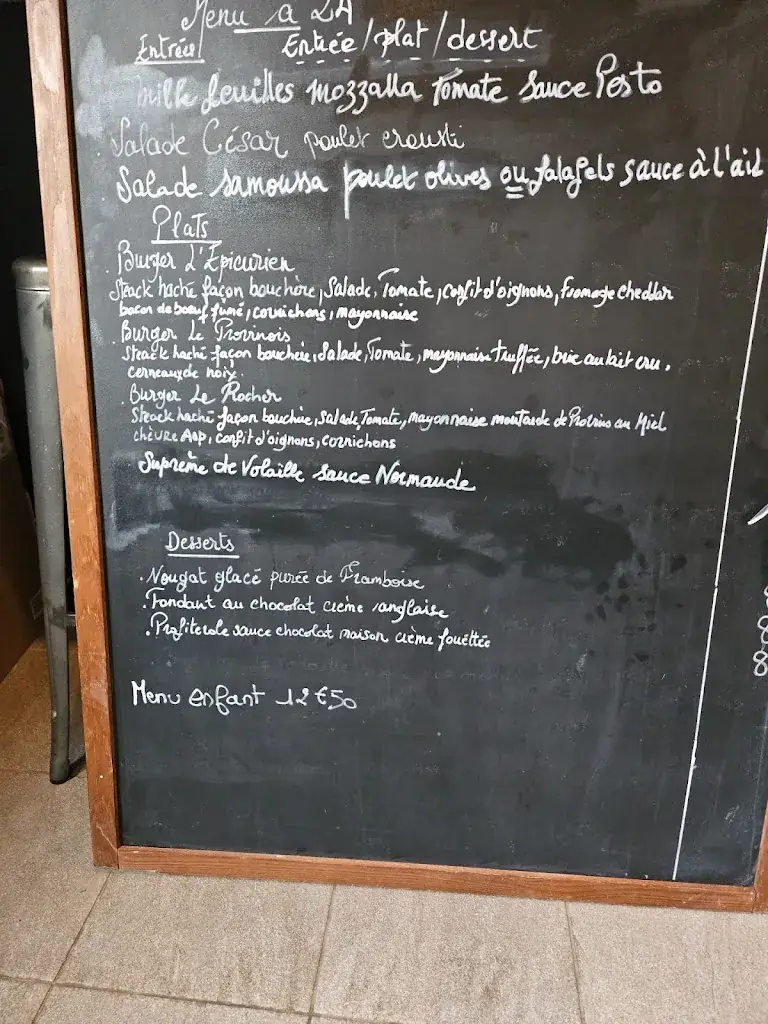 Menu à
Entrée/plat/dessert
Entrées
milk feuilles mozzalla Tomate sauce Pesto
Salade César poulet crousti
Salade samoussa poulet olives ou falafels sauce à l'ail
Plats
. Burger L'Epicurien
Steack haché façon bouchère, Salade, Tomate, confit d'oignons, fromage cheddar
bacon de boeuf fumé, cornichons, mayonnaise
. Burger Le Provinois
Steack haché façon bouchère, Salade, Tomate, mayonnaise truffée, brie au lait cru,
cerneaux de noix.
. Burger Le Rocher
Steack haché façon bouchère, salade, Tomate, mayonnaise moutarde de Provins au Miel
chèvre Aop, confit d'oignons, cornichons
Suprême de Volaille sauce Normande
Desserts
. Nougat glacé purée de Framboise
. Fondant au chocolat crème anglaise
. Profiterole sauce chocolat maison crème fouettée
Menu enfant 12€50